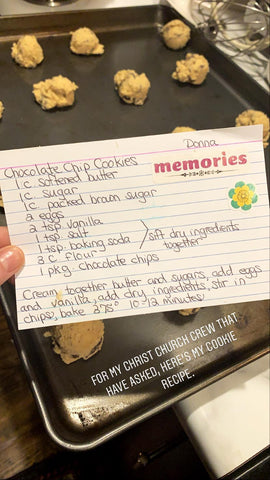 Donna
memories
Chocolate Chip Cookies
1 c. softened butter
1 c. sugar
1 c. packed brown sugar
2 eggs
2 tsp. vanilla
1 tsp. salt
1 tsp. baking soda
3 c. flour
sift dry ingredients
together
1 pkg. chocolate chips
Cream together butter and sugars, add eggs
and vanilla, add dry ingredients, stir in
chips, bake 375° 10-12 minutes
FOR MY CHRIST CHURCH CREW THAT
HAVE ASKED, HERE'S MY COOKIE
RECIPE.